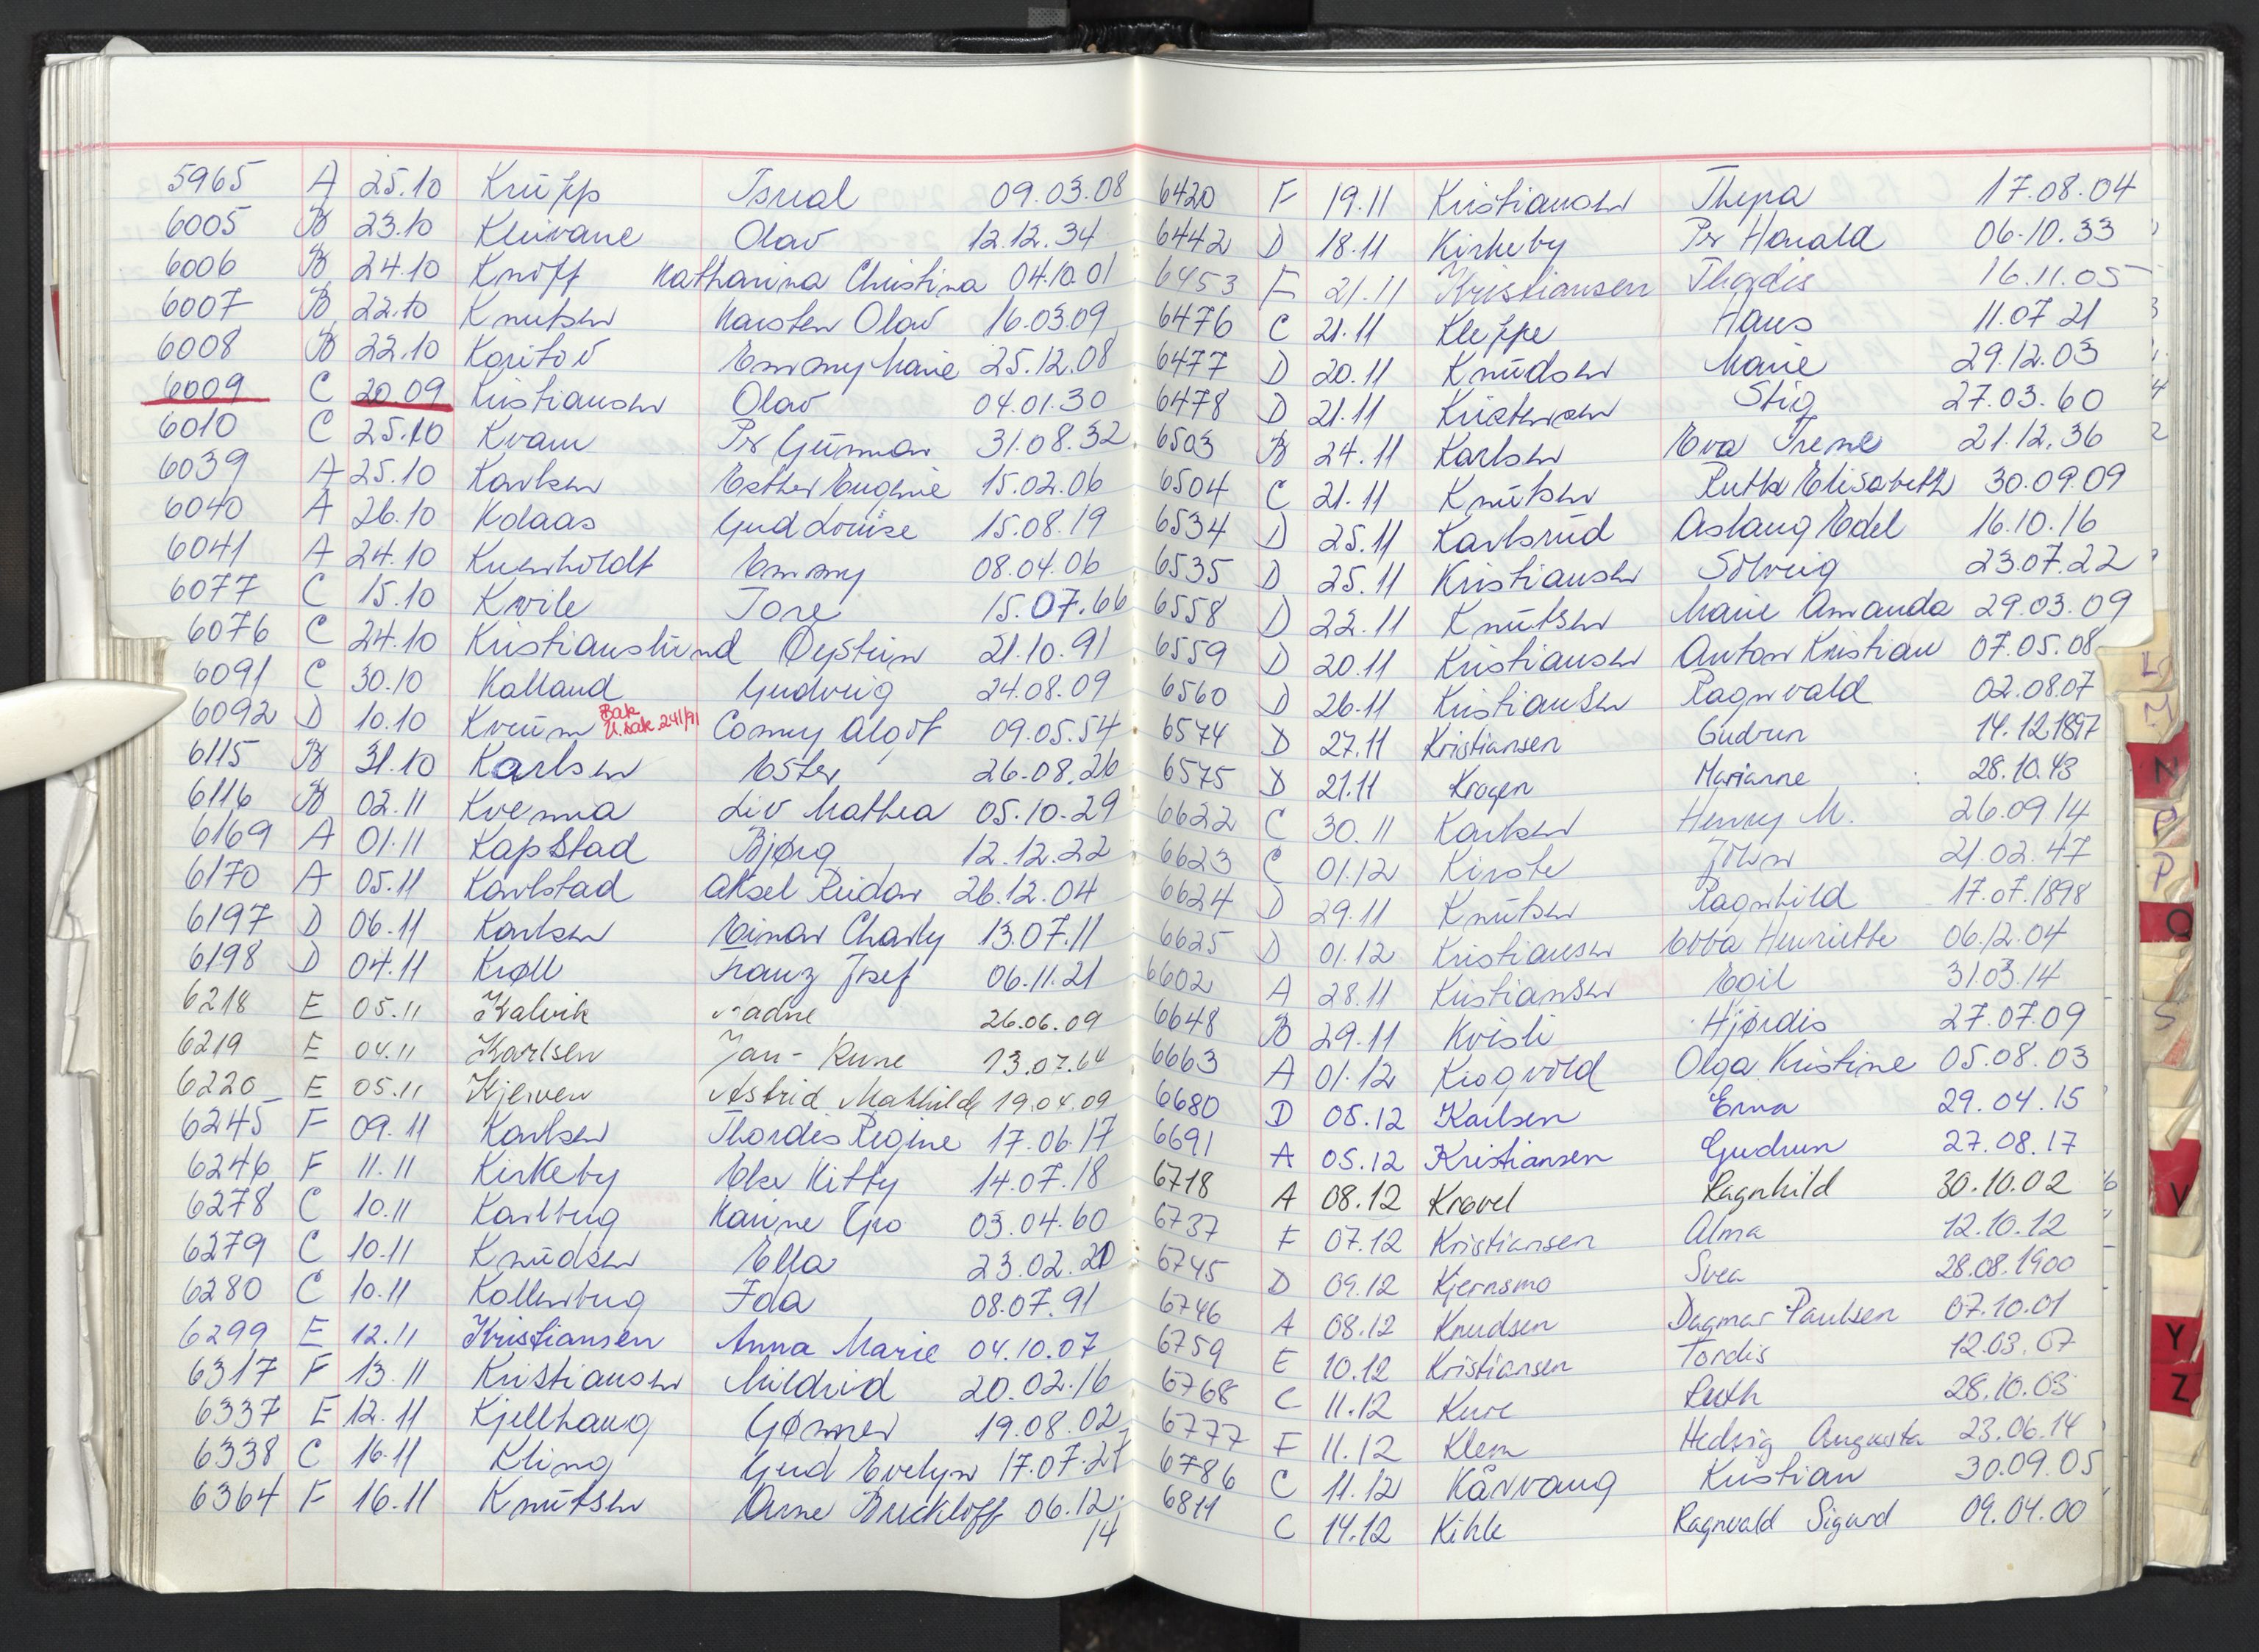 5965 A 25.10 Krupp Isreal 09.03.08
6005 B 23.10 Kleivane Olav 12.12.34
6006 B 24.10 Knoff Katharina Christina 04.10.01
6007 B 22.10 Knutsen Karsten Olav 16.03.09
6008 B 22.10 Koritov Emmy Marie 25.12.08
6009 C 20.09 Kristiansen Olav 04.01.30
6010 C 25.10 Kvam Per Gunnar 31.08.32
6039 A 25.10 Karlsen Esther Eugenie 15.02.06
6040 A 26.10 Kolaas Gud Louise 15.08.19
6041 A 24.10 Emmy 08.04.06
6077 C 15.10 Kvile Tore 15.07.66
6076 C 24.10 Kristianslund Øystein 21.10.91
6091 C 30.10 Kalland Gudveig 24.08.09
6092 D 10.10 Krum Bak U.sak 241/91 Conny Algot 09.05.54
6115 B 31.10 Karlsen Ester 26.08.26
6116 B 02.11 Kvenna Liv Mathea 05.10.29
6169 A 01.11 Kapstad Bjørg 12.12.22
6170 A 05.11 Karlstad Aksel Reidar 26.12.04
6197 D 06.11 Karlsen Einar Charly 13.07.11
6198 D 04.11 Krøll Franz Josef 06.11.21
6218 E 05.11 Kalvik 26.06.09
6219 E 04.11 Karlsen Jan-Rune 13.07.64
6220 E 05.11 Kjerven Astrid Mathilde 19.04.09
6245 F 09.11 Karlsen Thordis Regine 17.06.17
6246 F 11.11 Kirkeby Else Kitty 14.07.18
6278 C 10.11 Karlberg Karine Gro 03.04.60
6279 C 10.11 Knudsen Ella 23.02.20
6280 C 10.11 Kollenberg Ida 08.07.91
6299 E 12.11 Kristiansen Anna Marie 04.10.07
6317 F 13.11 Kristiansen Mildrid 20.02.16
6337 E 12.11 Kjellhaug Gønner 19.08.02
6338 C 16.11 Kling Gud Evelyn 17.07.27
6364 F 16.11 Knutsen Arne Buckloff 06.12.
14
6420 F 19.11 Kristiansen Thyra 17.08.04
6442 D 18.11 Kirkeby Per Harald 06.10.33
6453 F 21.11 Kristiansen Thordis 16.11.05
6476 C 21.11 Kleppe Hans 11.07 21
6477 D 20.11 Knudsen Marie 29.12.03
6478 D 21.11 Kristensen Stig 27.03.60
6503 B 24.11 Karlsen Eva Irene 21.12.36
6504 C 21.11 Knutsen Ruth Elisabeth 30.09.09
6534 D 25.11 Karlsrud Aslaug Edel 16.10.16
6535 D 25.11 Kristiansen Solveig 23.07.22
6558 D 22.11 Knutsen Marie Amanda 29.03.09
6559 D 20.11 Kristiansen Anton Kristian 07.05.08
6560 D 26.11 Kristiansen Ragnvald 02.08.07
6574 D 27.11 Kristiansen Gudrun 14.12.1897
6575 D 21.11 Krogen Marianne 28.10.43
6622 C 30.11 Karlsen Henry M. 26.09.14
6623 C 01.12 Kirste John 21.02.47
6624 D 29.11 Knutsen Ragnhild 17.07.1898
6625 D 01.12 Kristiansen Ebba Henriette 06.12.04
6602 A 28.11 Kristiansen Egil 31.03.14
6648 B 29.11 Kvisli Hjørdis 27.07.09
6663 A 01.12 Krogvold Olga Kristine 05.08.03
6680 D 05.12 Karlsen Erna 29.04.15
6691 A 05.12 Kristiansen Gudrun 27.08.17
6718 A 08.12 Kravel Ragnhild 30.10.02
6737 F 07.12 Kristiansen Alma 12.10.12
6745 D 09.12 Kjernsmo Svea 28.08.1900
6746 A 08.12 Knudsen Dagmar Paulsen 07.10.01
6759 E 10.12 Kristiansen Tordis 12.03.07
6768 C 11.12 Kure Ruth 28.10.03
6777 F 11.12 Klem Hedvig Augusta 23.06.14
6786 C 11.12 Kårvang Kristian 30.09.05
6811 C 14.12 Kihle Ragnvald Sigurd 09.04.00
N
P
Q
S
V
Y
Z